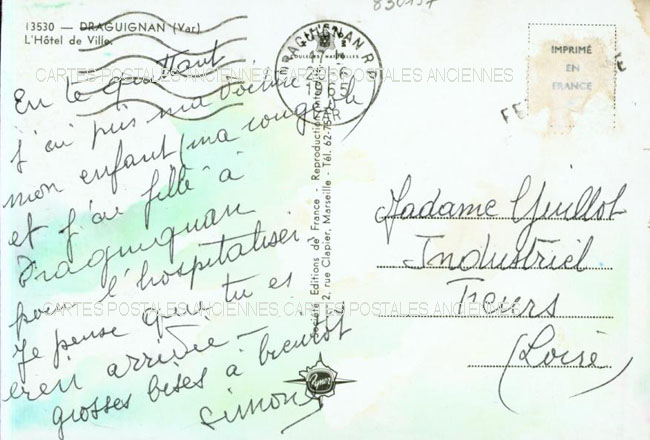 830157
13530 - DRAGUIGNAN (Var)
L'Hôtel de Ville.
DRAGUIGNAN R.P.
1965
VAR
IMPRIMÉ
EN
FRANCE
CARTES POSTALES ANCIENNES CARTES POSTALES ANCIENNES
En te quittant
j'ai pris ma voiture
mon enfant, ma
et j'ai filé à
Draguignan
pour l'hospitaliser.
Je pense que tu es
bien arrivée -
grosses bises à bientôt
Simone
Société Editions de France - Reproduction
2, rue Clapier, Marseille - Tél. 62-75
Madame Guillot
Industriel
Feurs
(Loire)
CARTES POSTALES ANCIENNES CARTES POSTALES ANCIENNES